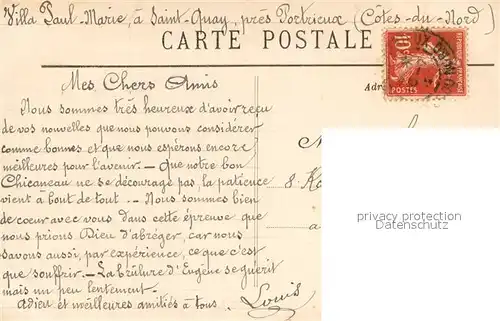 Villa Paul-Marie, à Saint-Quay, près Portrieux (Côtes-du-Nord)
CARTE POSTALE
10
Mes Chers Amis
Nous sommes très heureux d'avoir reçu
de vos nouvelles que nous pouvons considérer
comme bonnes et que nous espérons encore
meilleures pour l'avenir. — Que notre bon
Chicaneau ne se décourage pas, la patience
vient à bout de tout. — Nous sommes bien
de cœur avec vous dans cette épreuve que
nous prions Dieu d'abréger, car nous
savons aussi, par expérience, ce que c'est
que souffrir. — La brûlure d'Eugène se guérit
mais un peu lentement.
Adieu et meilleures amitiés à tous.
Louis
Adr
8
privacy protection